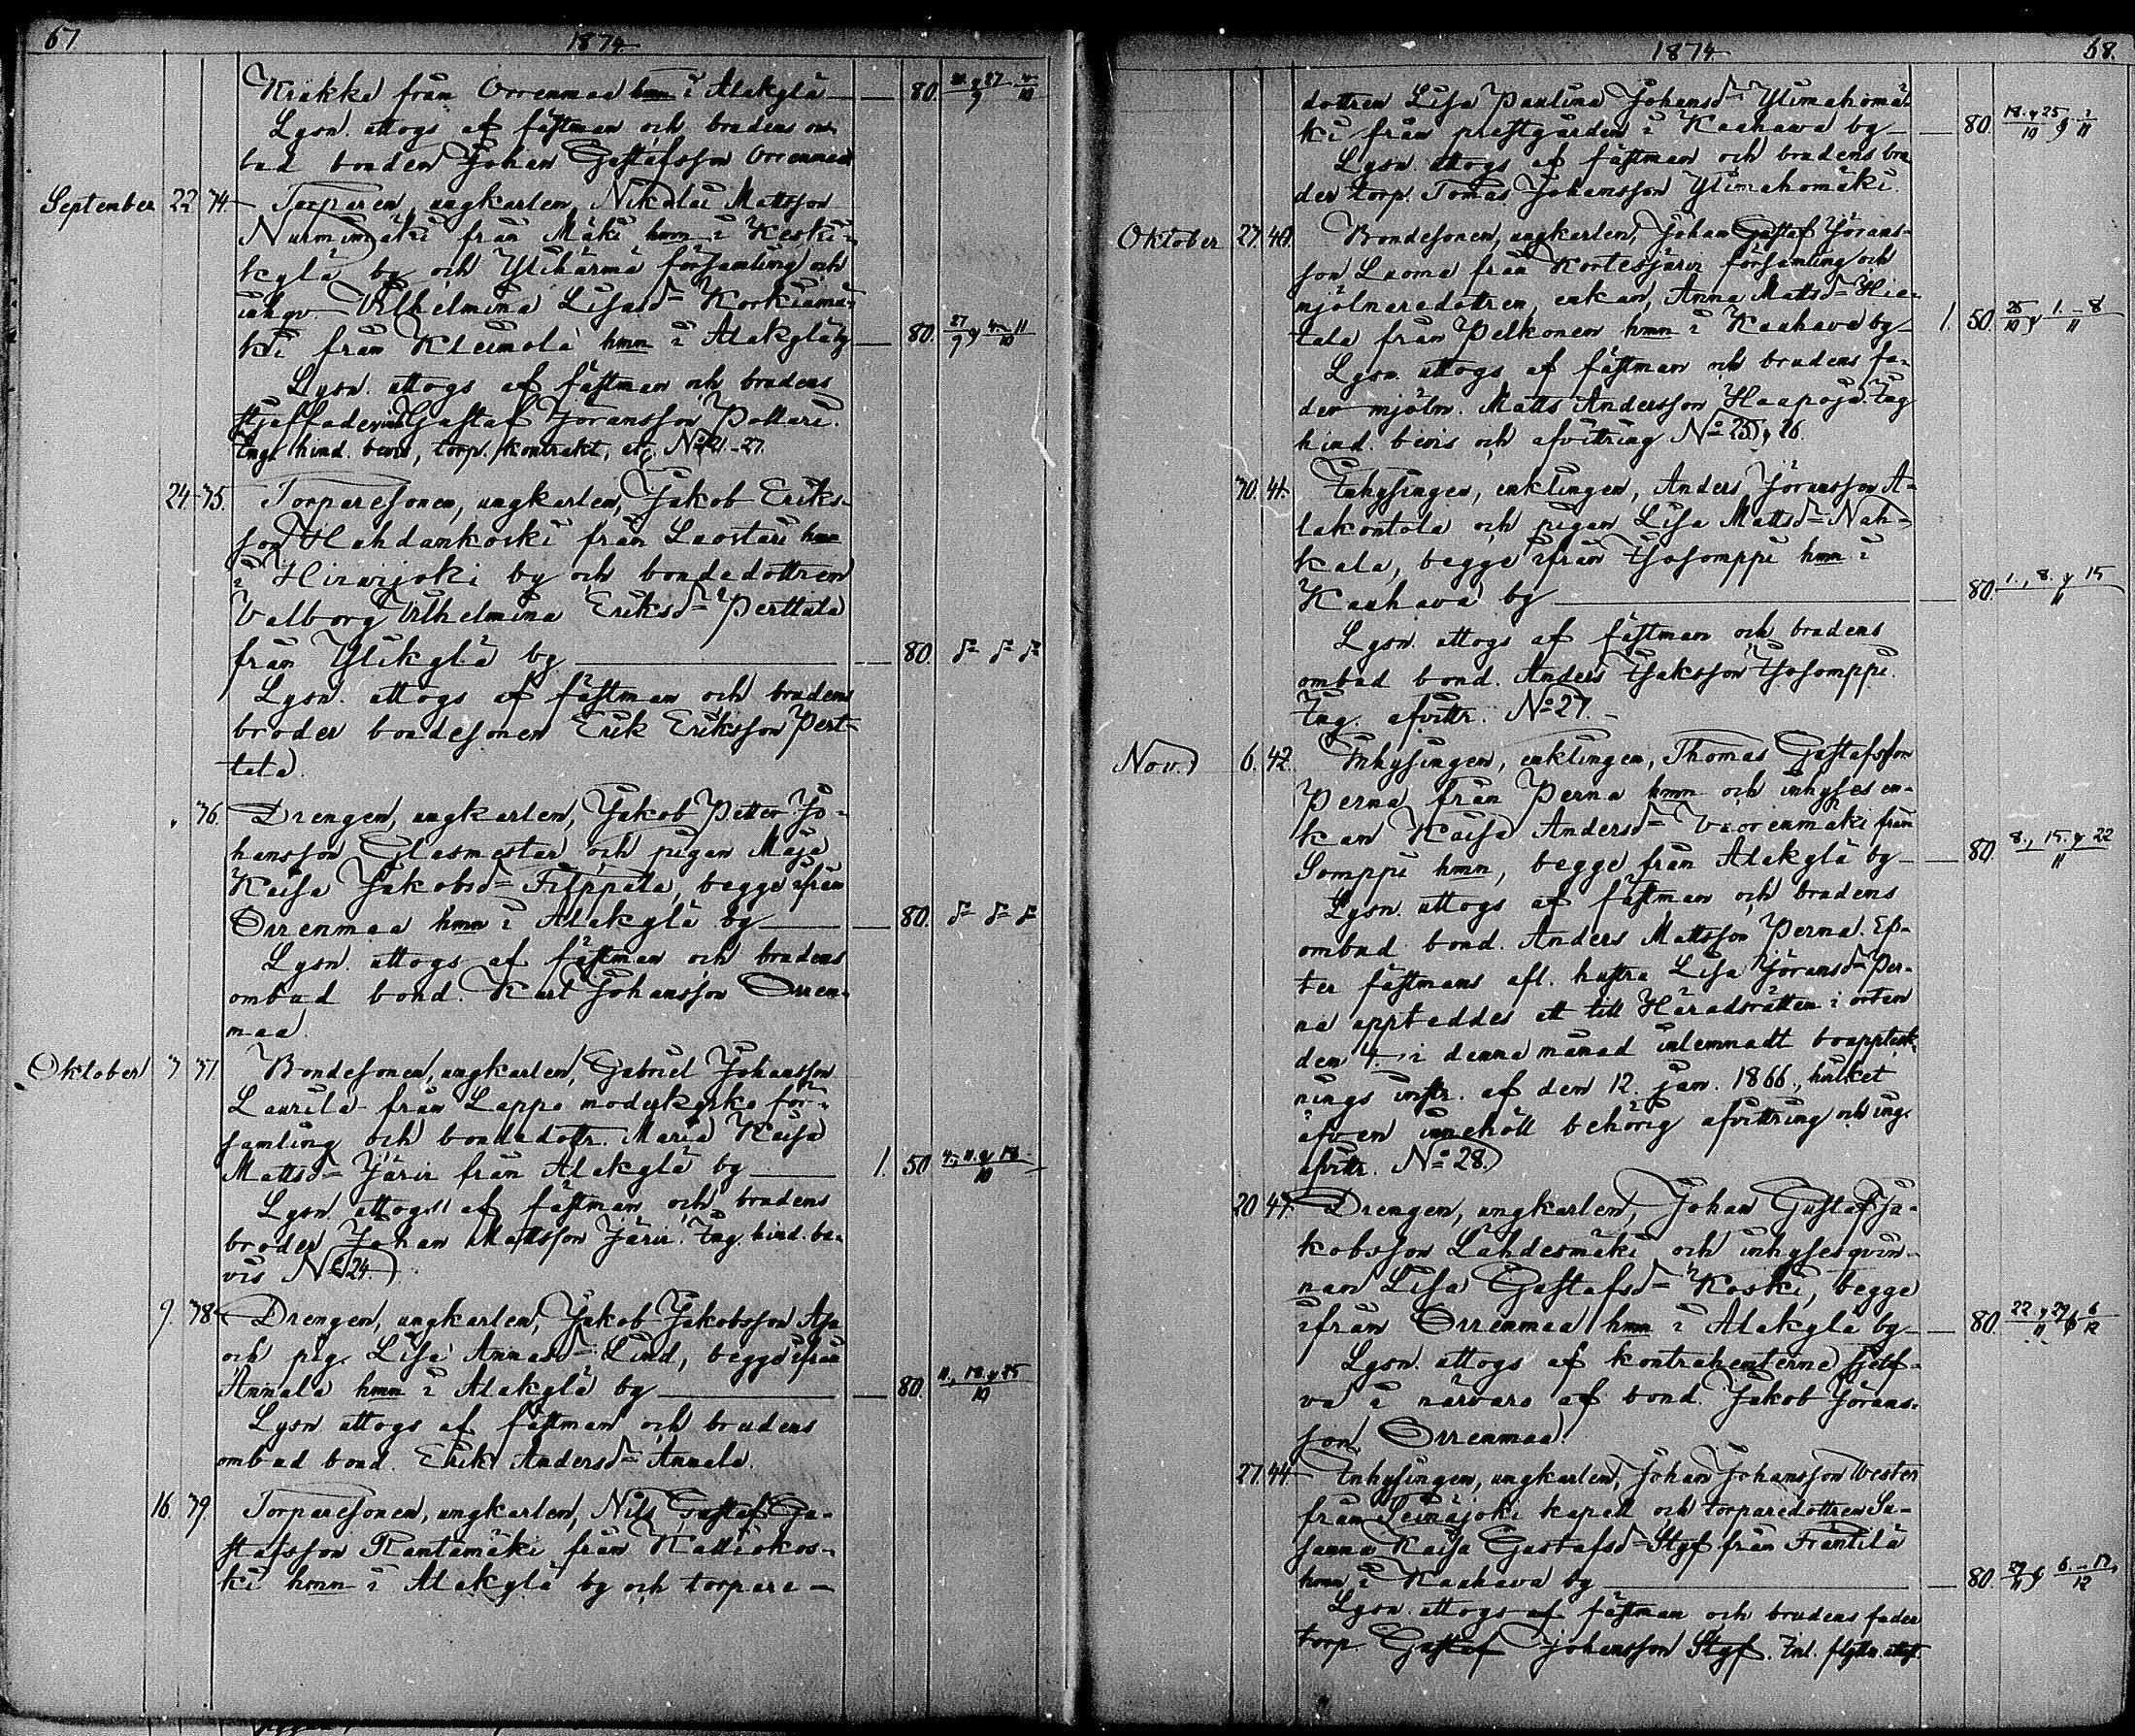 67
1874.
Krakka från Orrenmaa hmn i Alakylä — — 80. 20. y 27/9 4/10
Lysn. uttogs af fästman och brudens om-
bud bonden Johan Gustafsson Orrenmaa
September 22 74. Torparen, ungkarlen, Nikolai Mattsson
Nurmimäki från Mäki hmn i Keski-
kylä by och Ylihärmä församling och
inhqv. Vilhelmina Lisasd= Korkiamä-
ki från Kleimola hmn i Alakylä by — 80. 27/9 y 4.-11/10
Lysn. uttogs af fästman och brudens
styffader Gustaf Jöransson Pollari.
Ing. hind. bevis, torp. kontrakt, No 21-27.
24. 75. Torparesonen, ungkarlen, Jakob Eriks-
son Hahdankoski från Laostari hmn
i Hirvijoki by och bondedottren
Valborg Vilhelmina Eriksd= Perttala
från Ylikylä by — — 80. d= d= d=
Lysn. uttogs af fästman och brudens
broder bondesonen Erik Eriksson Pert-
tala.
" 76. Drengen, ungkarlen, Jakob Petter Jo-
hansson Glasmestar och pigan Maja
Kaisa Jakobsd= Filppala, begge ifrån
Orrenmaa hmn i Alakylä by — — 80. d= d= d=
Lysn. uttogs af fästman och brudens
ombud bond. Karl Johansson Orren-
maa.
Oktober 3 77. Bondesonen, ungkarlen, Gabriel Johansson
Laurila från Lappo moderkyrko för-
samling och bondedottr. Maria Kaisa
Mattsd= Järvi från Alakylä by — 1. 50 4., 11. y 18/10
Lysn. uttogs af fästman och brudens
broder Johan Mattsson Järvi. Ing. hind. be-
vis No 24.
9. 78. Drengen, ungkarlen, Jakob Jakobsson
och pig. Lisa Annasd= Lind, begge ifrån
Annala hmn i Alakylä by — — 80. 11., 18. y 25/10
Lysn. uttogs af fästman och brudens
ombud bond. Erik Andersd= Annala.
16. 79. Torparesonen, ungkarlen, Nils Gustaf Gu-
stafsson Rantamäki från Kalliokos-
ki hmn i Alakylä by och torpare-
68.
1874.
dottren Lisa Paulina Johansd= Ylimahomä-
ki från prestgården i Kauhava by — — 80. 18. y 25/10 y 1/11
Lysn. uttogs af fästman och brudens bro
der torp. Tomas Johansson Ylimahomäki.
Oktober 27. 40. Bondesonen, ungkarlen, Johan Gustaf Jörans-
son Luoma från Kortesjärvi församling och
mjölnaredottren, enkan, Anna Mattsd= Hie-
tala från Pelkonen hmn i Kauhava by — 1. 50. 25/10 y 1.-8/11
Lysn. uttogs af fästman och brudens fa-
der mjöln. Matts Andersson Haapoja. Ing.
hind. bevis och afvittring No 25 y 26.
30. 41. Inhysingen, enklingen, Anders Jöransson A-
lakontola och pigan Lisa Mattsd= Nah-
kala, begge ifrån Isosomppi hmn i
Kauhava by — — 80. 1., 8. y 15/11
Lysn. uttogs af fästman och brudens
ombud bond. Anders Isaksson Isosomppi.
Ing. afvittr. No 27.
Nov. 6. 42. Inhysingen, enklingen, Thomas Gustafsson
Perna från Perna hmn och inhyses en-
kan Kaisa Andersd= Vuorenmäki från
Somppi hmn, begge från Alakylä by — — 80. 8., 15. y 22/11
Lysn. uttogs af fästman och brudens
ombud bond. Anders Mattsson Perna. Ef-
ter fästmans afl. hustru Lisa Jöransd= Per-
na uppteddes ett till Häradsrätten i orten
den 4. i denna månad inlemnadt boupptek-
nings instr. af den 12. jan. 1866., hvilket
äfven innehöll behörig afvittring och ing.
afvittr. No 28.
20. 43. Drengen, ungkarlen, Johan Gustaf Ja-
kobsson Lahdesmäki och inhysesqvin-
nan Lisa Gustafsd= Koski, begge
ifrån Orrenmaa hmn i Alakylä by — — 80. 22. y 29/11 y 6/12
Lysn. uttogs af kontrahenterne sjelf-
va i närvaro af bond. Jakob Jörans-
son Orrenmaa.
27. 44. Inhysingen, ungkarlen, Johan Johansson Wester
från Seinäjoki kapell och torparedottren Su-
sanna Kaisa Gustafsd= Styf från Frantila
hmn i Kauhava by — — 80. 29/11 y 6.-13./12
Lysn. uttogs af fästman och brudens fader
torp. Gustaf Johansson Styf. Inl. flyttn. attest